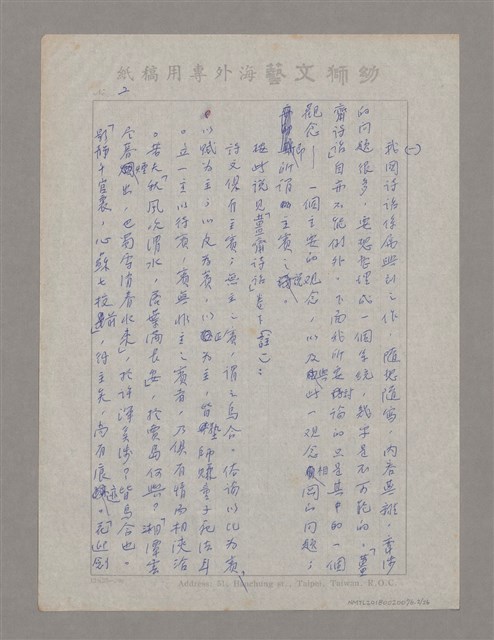 幼獅文藝海外專用稿紙
2
(一)
我國詩話係屬興到之作,隨想隨寫,內容龐雜,牽涉
的問題很多,要想整理成一個系統,幾乎是不可能的。「薑
齋詩話」自亦不能例外。下面我所要討論的只是其中的一個
觀念——一個主要的觀念,以及與此一觀念相同的問題:
即所謂「主賓」之說。
按此說見「薑齋詩話」卷下(註一):
詩文俱有主賓;無主之賓,謂之烏合。俗論以比為賓,
以賦為主;以反為賓,以正為主,皆塾師賺童子死法耳
。立一主以待賓,賓無非主之賓者,乃俱有情而相浹洽
。若夫「秋風吹渭水,落葉滿長安」,於賈島何與?「湘潭雲
盡暮煙出,巴蜀雪消春水來」,於許渾奚涉?皆烏合也。
「影靜千官裏,心蘇七校前」,得主矣,尚有痕迹。「花迎劍
Taipei, Taiwan R.O.C.